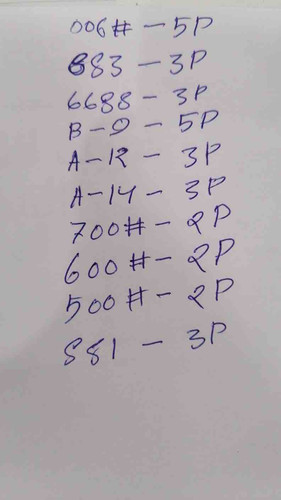 006# - 5P
883 - 3P
6688 - 3P
B-9 - 5P
A-12 - 3P
A-14 - 3P
700# - 2P
600# - 2P
500# - 2P
881 - 3P